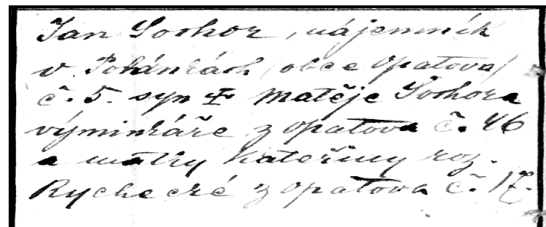 Jan Sochor, nájemník
v Pohánkách /obce Opatova/
č. 5. syn ☩ Matěje Sochora
výminkáře z Opatova č. 46
a matky Kateřiny roz.
Rychecké z Opatova č. 17.